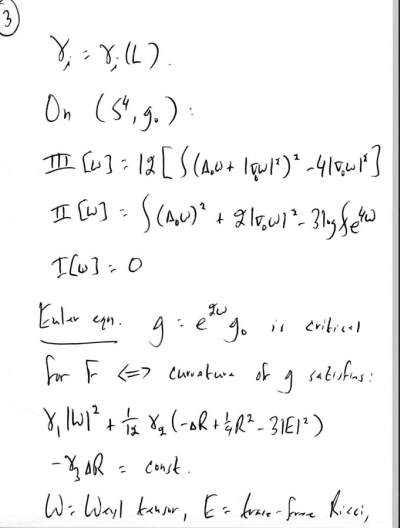 ③
γᵢ = γᵢ(L).
On (S⁴, g₀):
III[w] = 12[∫(Δ₀w + |∇₀w|²)² - 4|∇₀w|²]
II[w] = ∫(Δ₀w)² + 2|∇₀w|² - 3log⨍e⁴ʷ
I[w] = 0
Euler eqn. g = e²ʷg₀ is critical
for F <=> curvature of g satisfies:
γ₁|W|² + 1/12 γ₂(-ΔR + 1/4R² - 3|E|²)
-γ₃ΔR = const.
W = Weyl tensor, E = trace-free Ricci,